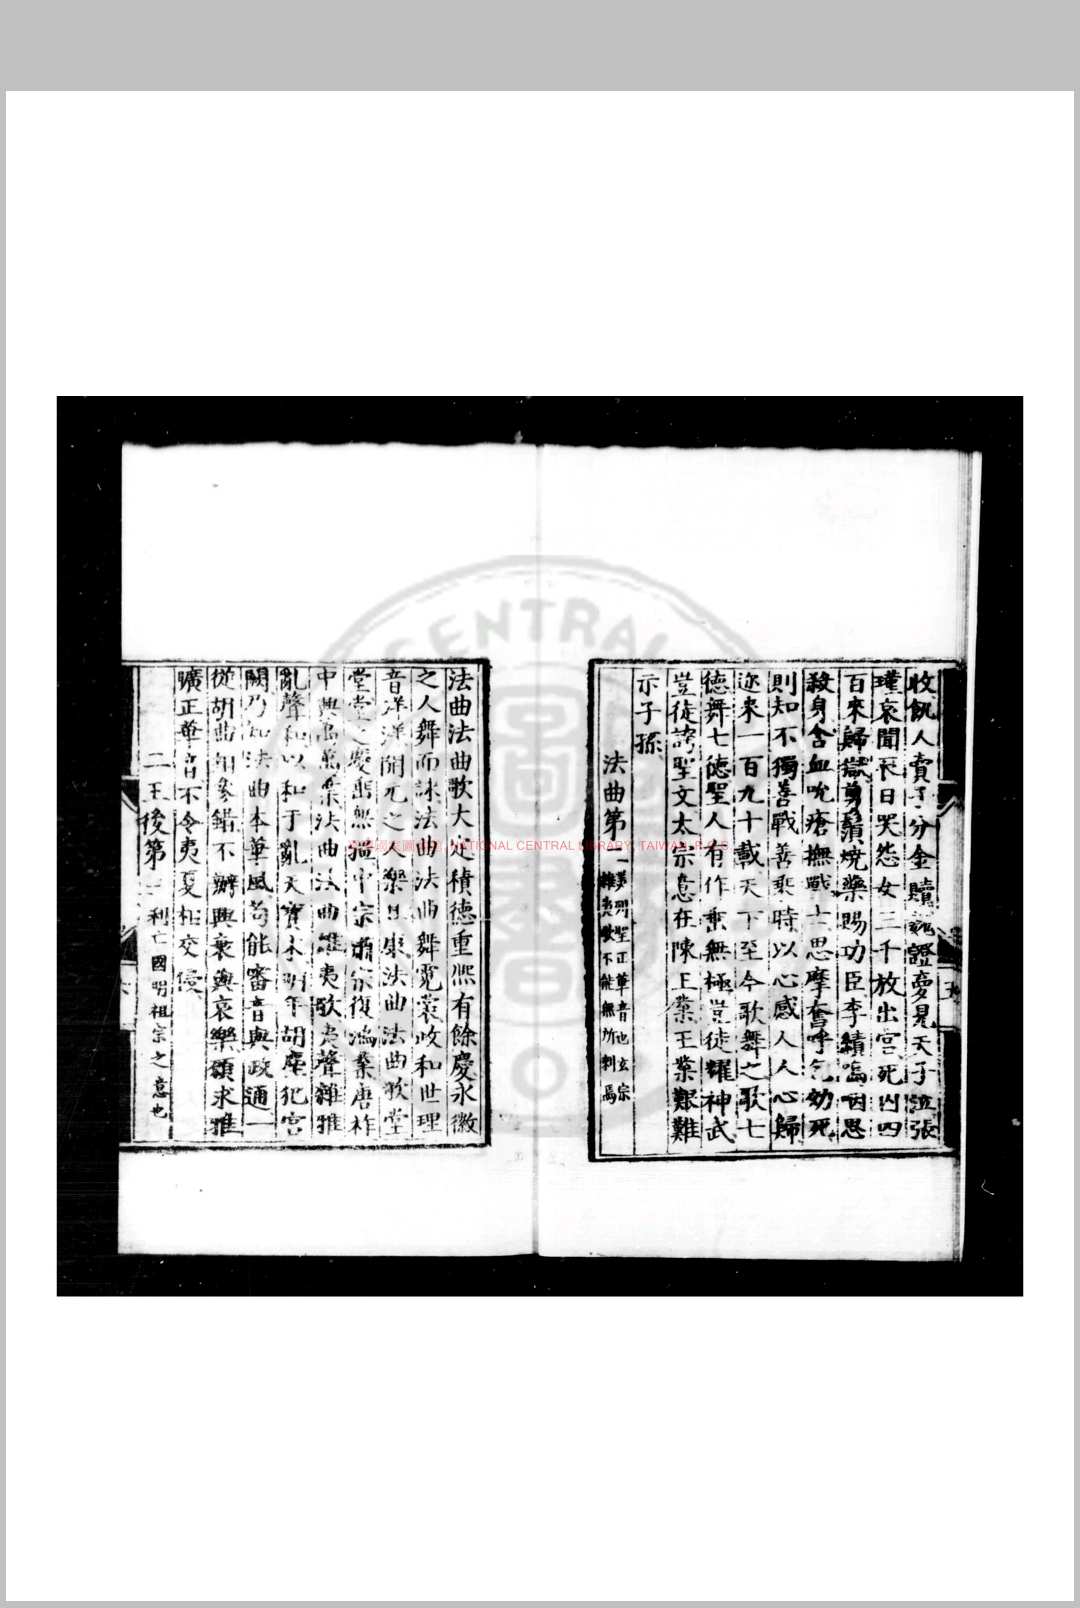 收飢人賣子分金贖魏證夢見天子泣張
瑾哀聞辰日哭怨女三千放出宮死囚四
百來歸獄剪鬚燒藥賜功臣李績嗚咽思
殺身含血吮瘡撫戰士思摩奮呼乞効死
則知不獨善戰善乘時以心感人人心歸
迩來一百九十載天下至今歌舞之歌七
德舞七德聖人有作垂無極豈徒耀神武
豈徒誇聖文太宗意在陳王業王業艱難
示子孫
法曲第二 美列聖正華音也玄宗
雜夷歌不能無所刺焉
五
法曲法曲歌大定積德重熙有餘慶永徽
之人舞而詠法曲法曲舞霓裳政和世理
音洋洋開元之人樂且康法曲法曲歌堂
堂堂之慶垂無疆中宗肅宗復鴻業唐祚
中興萬萬葉法曲法曲雜夷歌夷聲雜雅
亂聲和以和于亂天寶末明年胡塵犯宮
闕乃知法曲本華風苟能審音與政通一
從胡曲相參錯不辨興衰與哀樂願求雅
曠正華音不令夷夏相交侵
二王後第三 刺亡國明祖宗之意也
NATIONAL CENTRAL LIBRARY, TAIWAN, R.O.C.
CENTRAL